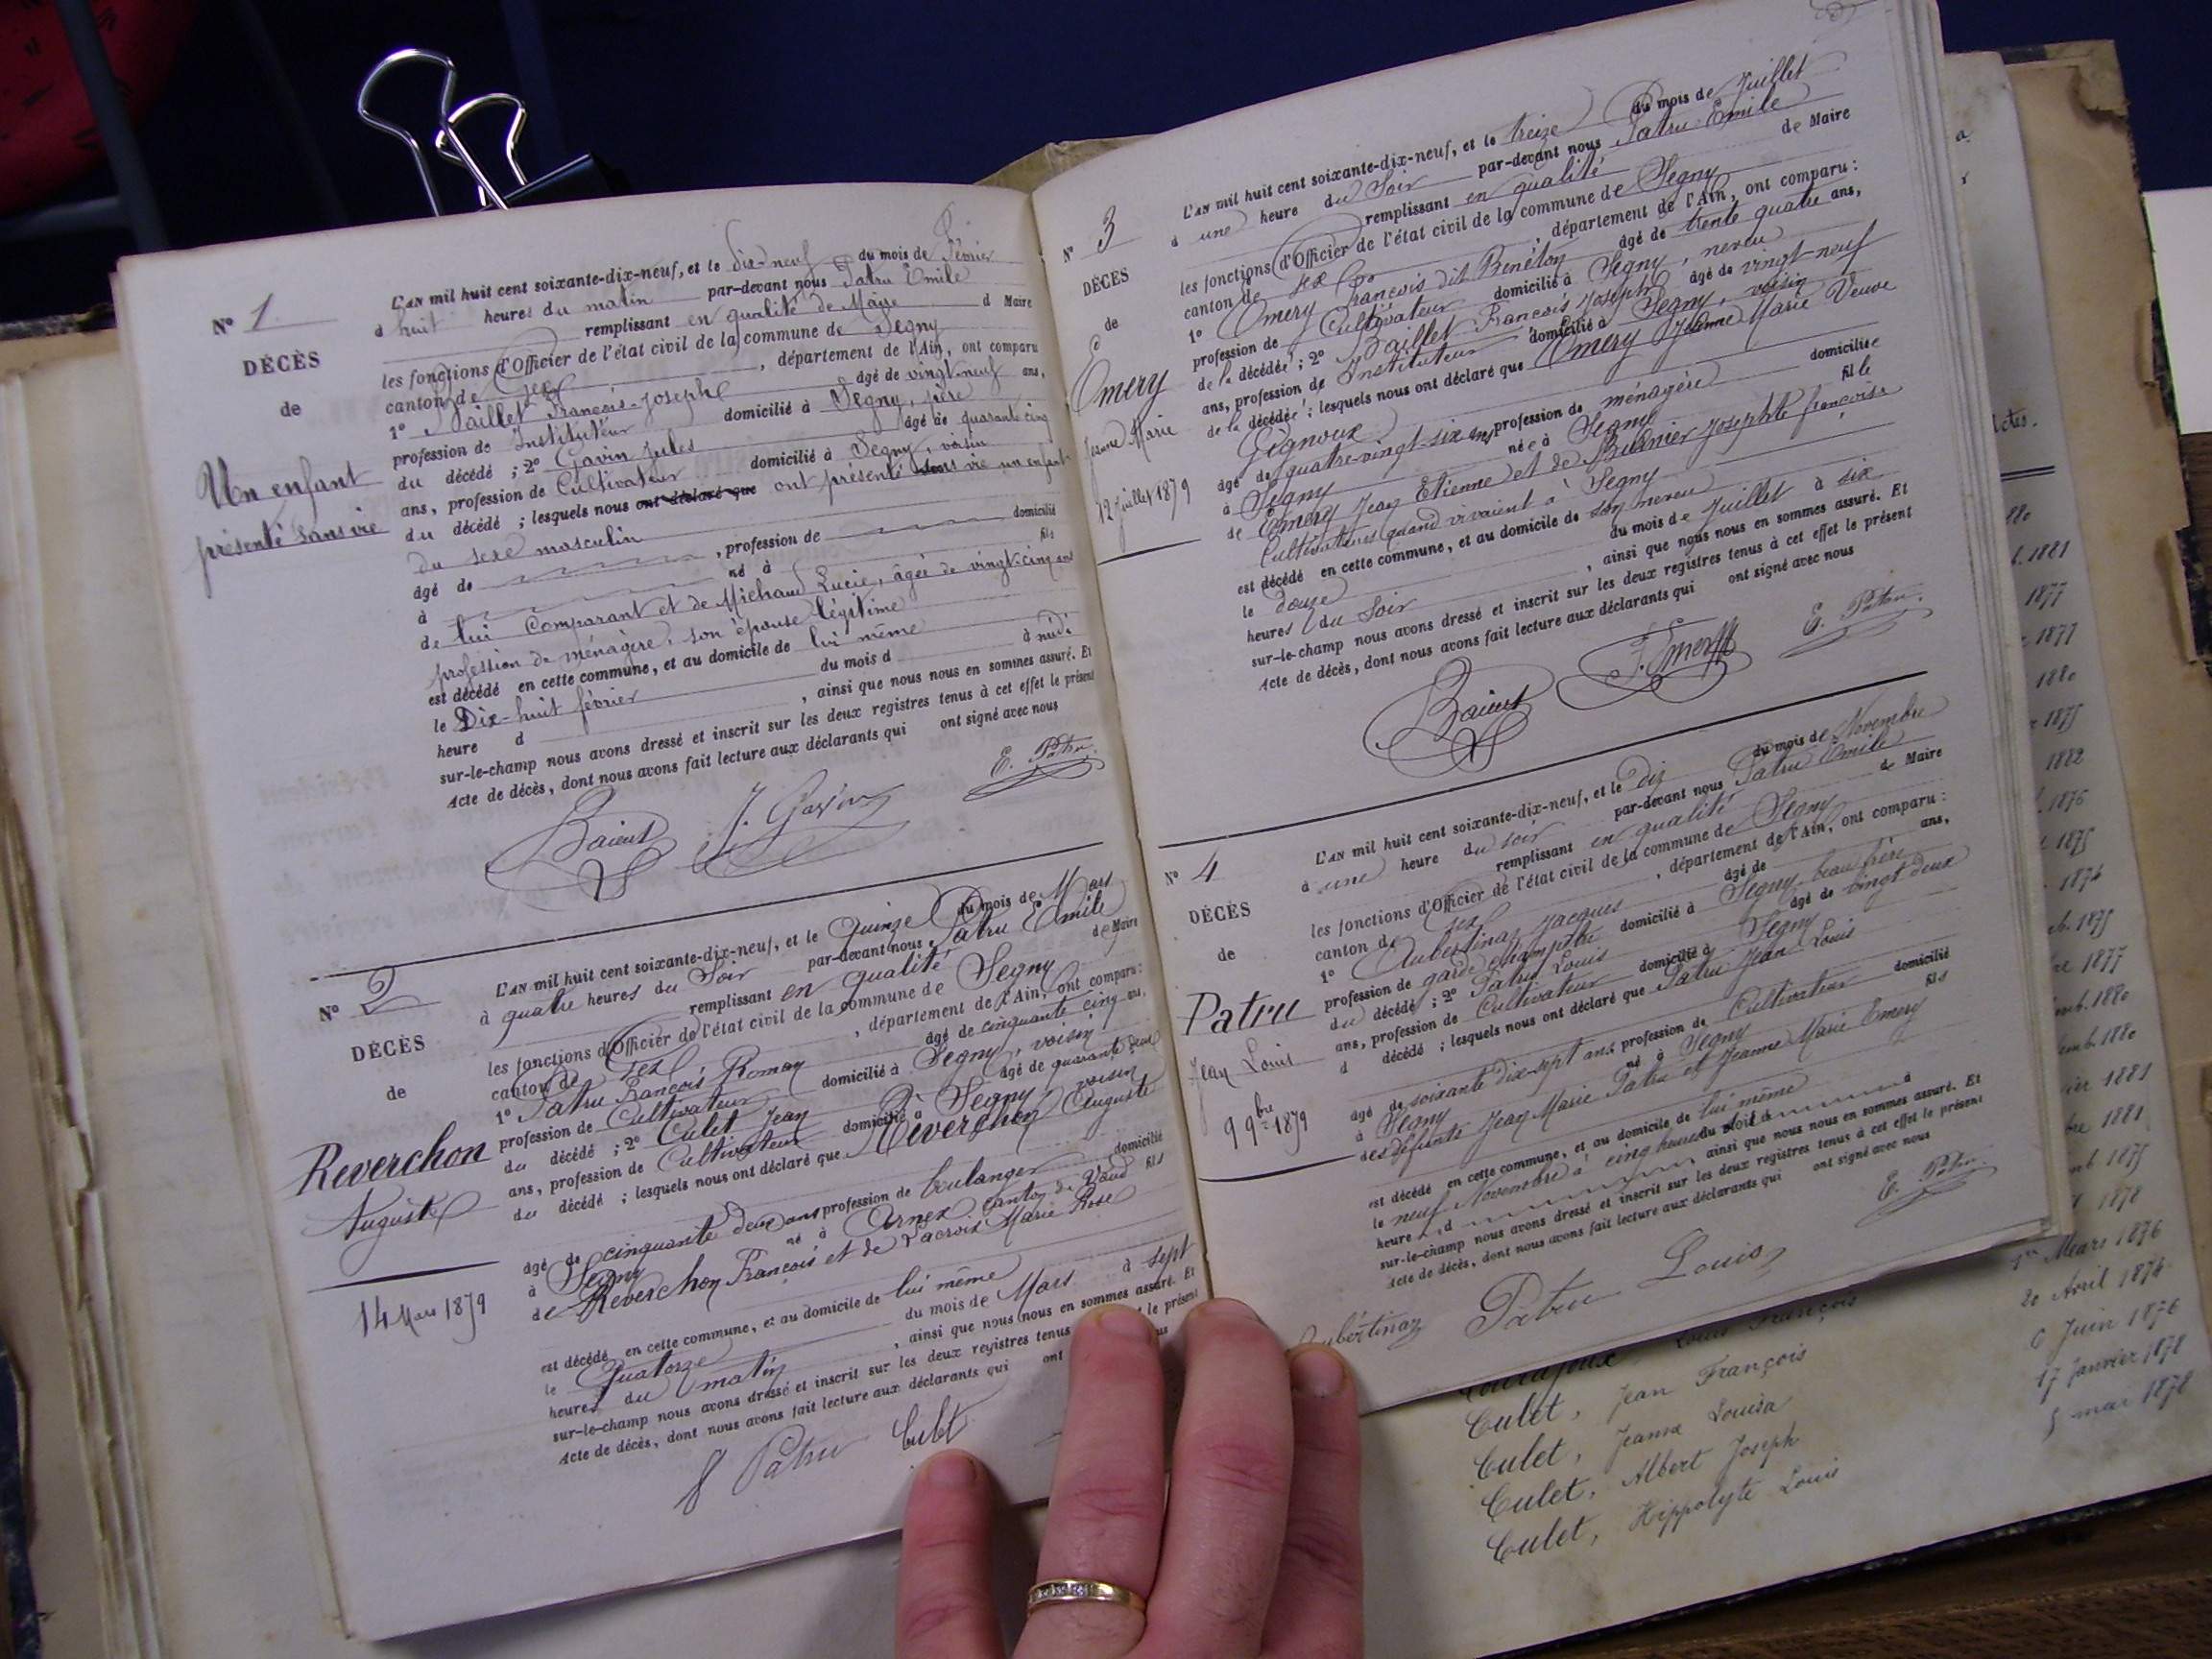 N° 1.
DÉCÈS
de
Un enfant
présenté sans vie
L'AN mil huit cent soixante-dix-neuf, et le dix-neuf du mois de Février
à huit heures du matin par-devant nous Patru Emile
remplissant en qualité de Maire d Maire
les fonctions d'Officier de l'état civil de la commune de Segny
canton de Gex, département de l'Ain, ont comparu
1° François-Josephe âgé de vingt-neuf ans,
profession de Instituteur domicilié à Segny, père
du décédé ; 2° Gavin Jules âgé de quarante cinq
ans, profession de Cultivateur domicilié à Segny, voisin
du décédé ; lesquels nous ont déclaré que ont présenté sans vie un enfant
du sexe masculin
âgé de , profession de domicilié
à né à fils
de lui Comparant et de Michaud Lucie, âgée de vingt-cinq ans
profession de ménagère, son épouse légitime
est décédé en cette commune, et au domicile de lui même
le Dix-huit février du mois d à midi
heure d , ainsi que nous nous en sommes assuré. Et
sur-le-champ nous avons dressé et inscrit sur les deux registres tenus à cet effet le présent
Acte de décès, dont nous avons fait lecture aux déclarants qui ont signé avec nous
J. Gavin E. Patru
N° 2
DÉCÈS
de
Reverchon
Auguste
14 Mars 1879
L'AN mil huit cent soixante-dix-neuf, et le Quinze du mois de Mars
à quatre heures du Soir par-devant nous Patru Emile
remplissant en qualité de Maire
les fonctions d'Officier de l'état civil de la commune de Segny
canton de Gex, département de l'Ain, ont comparu :
1° Patru François Roman âgé de cinquante cinq ans,
profession de Cultivateur domicilié à Segny, voisin
du décédé ; 2° Culet Jean âgé de quarante deux
ans, profession de Cultivateur domicilié à Segny voisin
du décédé ; lesquels nous ont déclaré que Reverchon Auguste
âgé de cinquante deux ans profession de boulanger domicilié
à Segny né à Arnex canton de Vaud fils
de Reverchon François et de Lacroix Marie Rose
est décédé en cette commune, et au domicile de lui même
le Quatorze du mois de Mars à sept
heures du matin, ainsi que nous nous en sommes assuré. Et
sur-le-champ nous avons dressé et inscrit sur les deux registres tenus le présent
Acte de décès, dont nous avons fait lecture aux déclarants qui ont
Patru Culet
N° 3
DÉCÈS
de
Emery
Jeanne Marie
12 Juillet 1879
L'AN mil huit cent soixante-dix-neuf, et le treize du mois de Juillet
à une heure du Soir par-devant nous Patru Emile
remplissant en qualité de Maire
les fonctions d'Officier de l'état civil de la commune de Segny
canton de Gex, département de l'Ain, ont comparu :
1° Emery François dit Benéton âgé de trente quatre ans,
profession de Cultivateur domicilié à Segny, neveu
de la décédée ; 2° François Joseph âgé de vingt-neuf
ans, profession de Instituteur domicilié à Segny, voisin
de la décédée ; lesquels nous ont déclaré que Emery Jeanne Marie Veuve
Gignoux
âgé de quatre-vingt-six ans profession de ménagère domiciliée
à Segny née à Segny fille
de Emery Jean Etienne et de Burnier Josephte françoise
Cultivateurs quand vivaient à Segny
est décédé en cette commune, et au domicile de son neveu
le douze du mois de Juillet à six
heures du Soir, ainsi que nous nous en sommes assuré. Et
sur-le-champ nous avons dressé et inscrit sur les deux registres tenus à cet effet le présent
Acte de décès, dont nous avons fait lecture aux déclarants qui ont signé avec nous
F. Emery E. Patru
N° 4
DÉCÈS
de
Patru
Jean Louis
9 9bre 1879
L'AN mil huit cent soixante-dix-neuf, et le dix du mois de Novembre
à une heure du soir par-devant nous Patru Emile
remplissant en qualité de Maire
les fonctions d'Officier de l'état civil de la commune de Segny
canton de Gex, département de l'Ain, ont comparu :
1° Aubertinaz Jacques âgé de ans,
profession de garde champêtre domicilié à Segny, beau frère
du décédé ; 2° Patru Louis âgé de vingt deux
ans, profession de Cultivateur domicilié à Segny
d décédé ; lesquels nous ont déclaré que Patru Jean-Louis
âgé de soixante dix-sept ans profession de Cultivateur domicilié
à Segny né à Segny fils
des défunts Jean Marie Patru et Jeanne Marie Emery
est décédé en cette commune, et au domicile de lui même
le neuf Novembre à cinq heures du soir à
heure d , ainsi que nous nous en sommes assuré. Et
sur-le-champ nous avons dressé et inscrit sur les deux registres tenus à cet effet le présent
Acte de décès, dont nous avons fait lecture aux déclarants qui ont signé avec nous
E. Patru
Aubertinaz Patru Louis
Louis François
Culet, Jean François
Culet, Jeanne Louisa
Culet, Albert Joseph
Culet, Hippolyte Louis
1881
1877
1877
1880
1875
1882
1876
1875
1874
1875
1877
1880
1880
1881
1881
1875
1878
1er Mars 1876
20 Avril 1874
6 Juin 1876
17 Janvier 1878
5 mai 1878